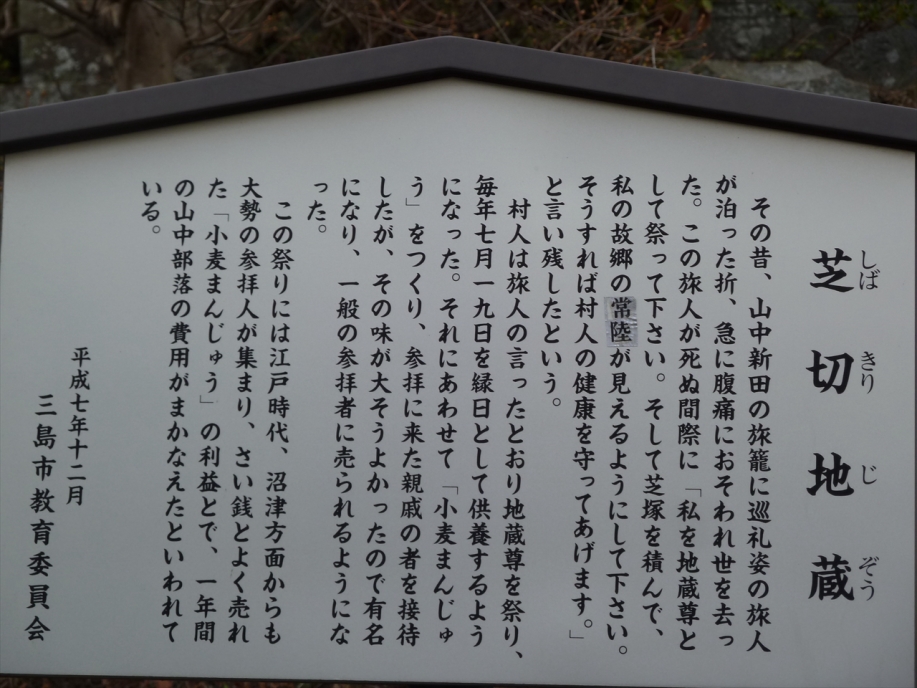 芝切地蔵
しばきりじぞう
その昔、山中新田の旅籠に巡礼姿の旅人
が泊った折、急に腹痛におそわれ世を去っ
た。この旅人が死ぬ間際に「私を地蔵尊と
して祭って下さい。そして芝塚を積んで、
私の故郷の常陸が見えるようにして下さい。
そうすれば村人の健康を守ってあげます。」
と言い残したという。
村人は旅人の言ったとおり地蔵尊を祭り、
毎年七月一九日を縁日として供養するよう
になった。それにあわせて「小麦まんじゅ
う」をつくり、参拝に来た親戚の者を接待
したが、その味が大そうよかったので有名
になり、一般の参拝者に売られるようにな
った。
この祭りには江戸時代、沼津方面からも
大勢の参拝人が集まり、さい銭とよく売れ
た「小麦まんじゅう」の利益とで、一年間
の山中部落の費用がまかなえたといわれて
いる。
平成七年十二月
三島市教育委員会